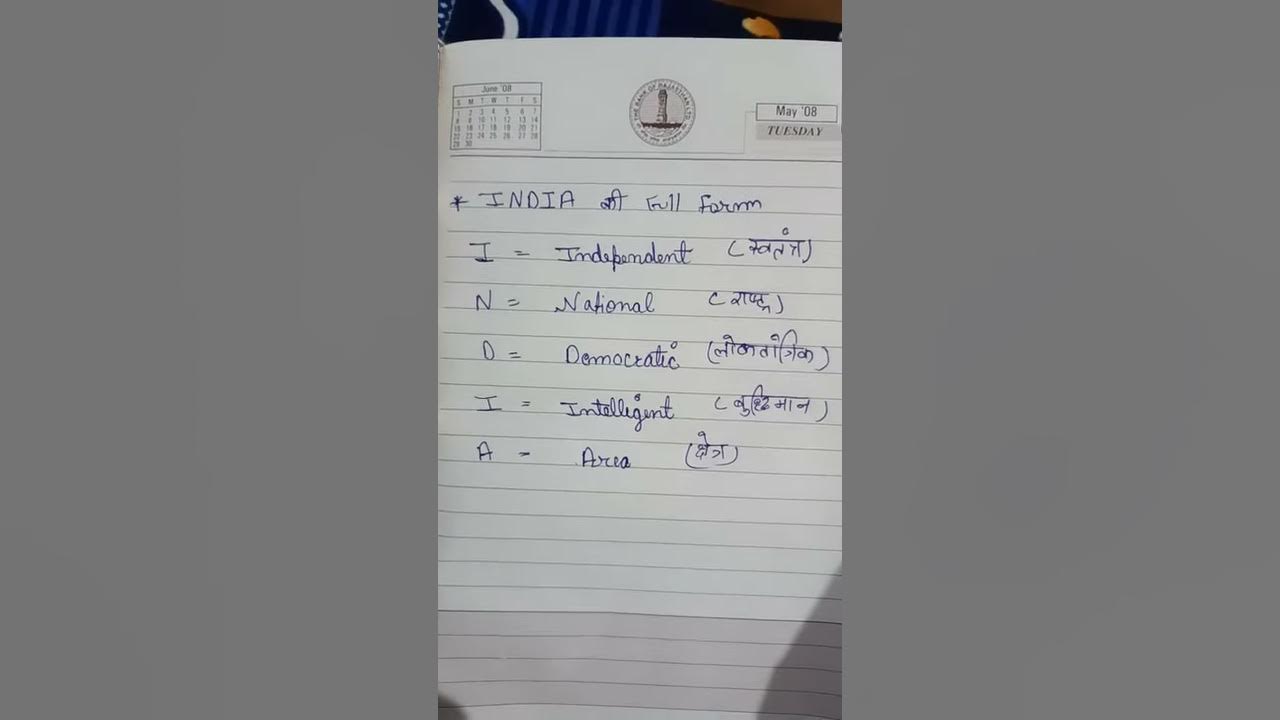 June '08
S M T W T F S
1 2 3 4 5 6 7
8 9 10 11 12 13 14
15 16 17 18 19 20 21
22 23 24 25 26 27 28
29 30
THE BANK OF RAJASTHAN LTD.
May '08
TUESDAY
* INDIA की Full Form
I = Independent (स्वतंत्र)
N = National (राष्ट्र)
D = Democratic (लोकतांत्रिक)
I = Intelligent (बुद्धिमान)
A = Area (क्षेत्र)